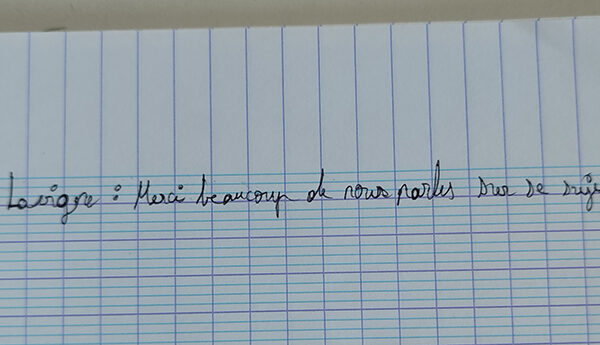 Lavigne : Merci beaucoup de nous parler sur se suje